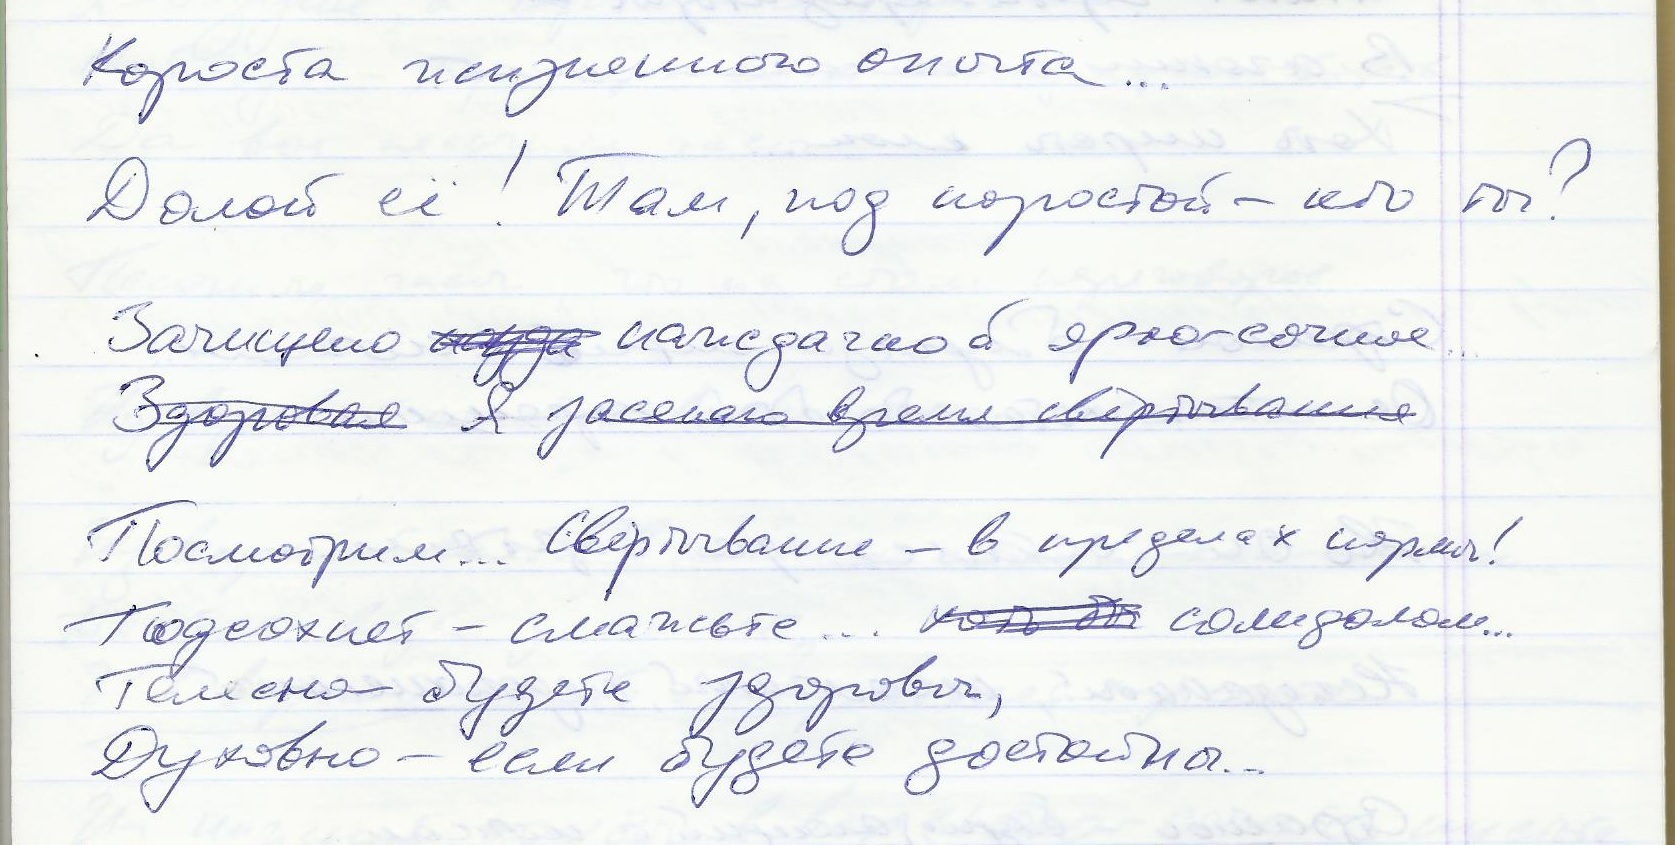 Короста жизненного опыта...
Долой её! Там, под коростой – кто ты?
Зачищено наждачкой ярко-сочное...
Здоровая Я засекаю время свёртывания
Посмотрим... Свёртывание – в пределах нормы!
Подсохнет – смажьте... хоть бы солидолом...
Телесно – будете здоровы,
Духовно – если будете достойны...